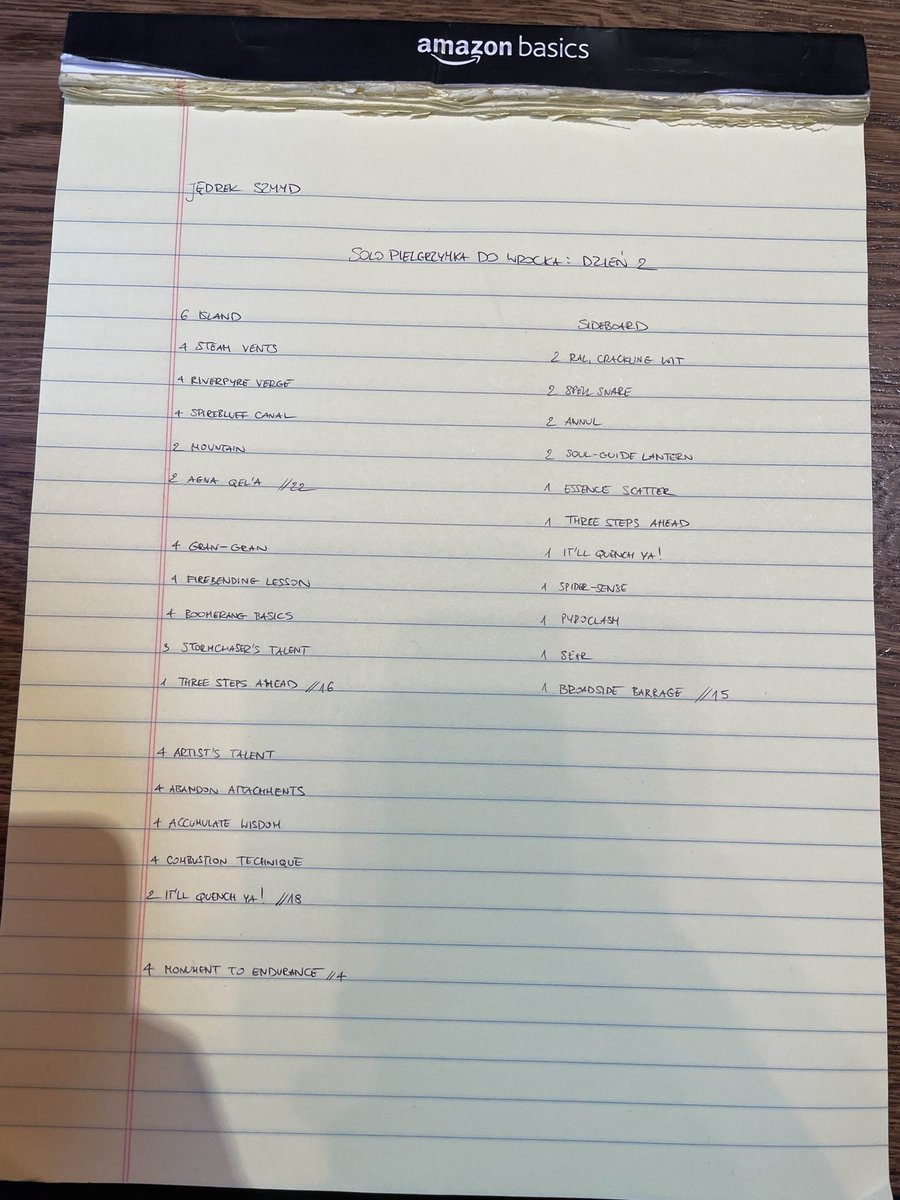 amazon basics
JĘDREK SZMYD
SOLO PIELGRZYMKA DO WROCKA: DZIEŃ 2
6 ISLAND
4 STEAM VENTS
4 RIVERPYRE VERGE
4 SPIREBLUFF CANAL
2 MOUNTAIN
2 AGNA QEL'A //22
4 GRAN-GRAN
4 FIREBENDING LESSON
4 BOOMERANG BASICS
3 STORMCHASER'S TALENT
1 THREE STEPS AHEAD //16
4 ARTIST'S TALENT
4 ABANDON ATTACHMENTS
4 ACCUMULATE WISDOM
4 COMBUSTION TECHNIQUE
2 IT'LL QUENCH YA! //18
4 MONUMENT TO ENDURANCE //4
SIDEBOARD
2 RAL, CRACKLING WIT
2 SPELL SNARE
2 ANNUL
2 SOUL-GUIDE LANTERN
1 ESSENCE SCATTER
1 THREE STEPS AHEAD
1 IT'LL QUENCH YA!
1 SPIDER-SENSE
1 PYROCLASM
1 SEAR
1 BROADSIDE BARRAGE //15